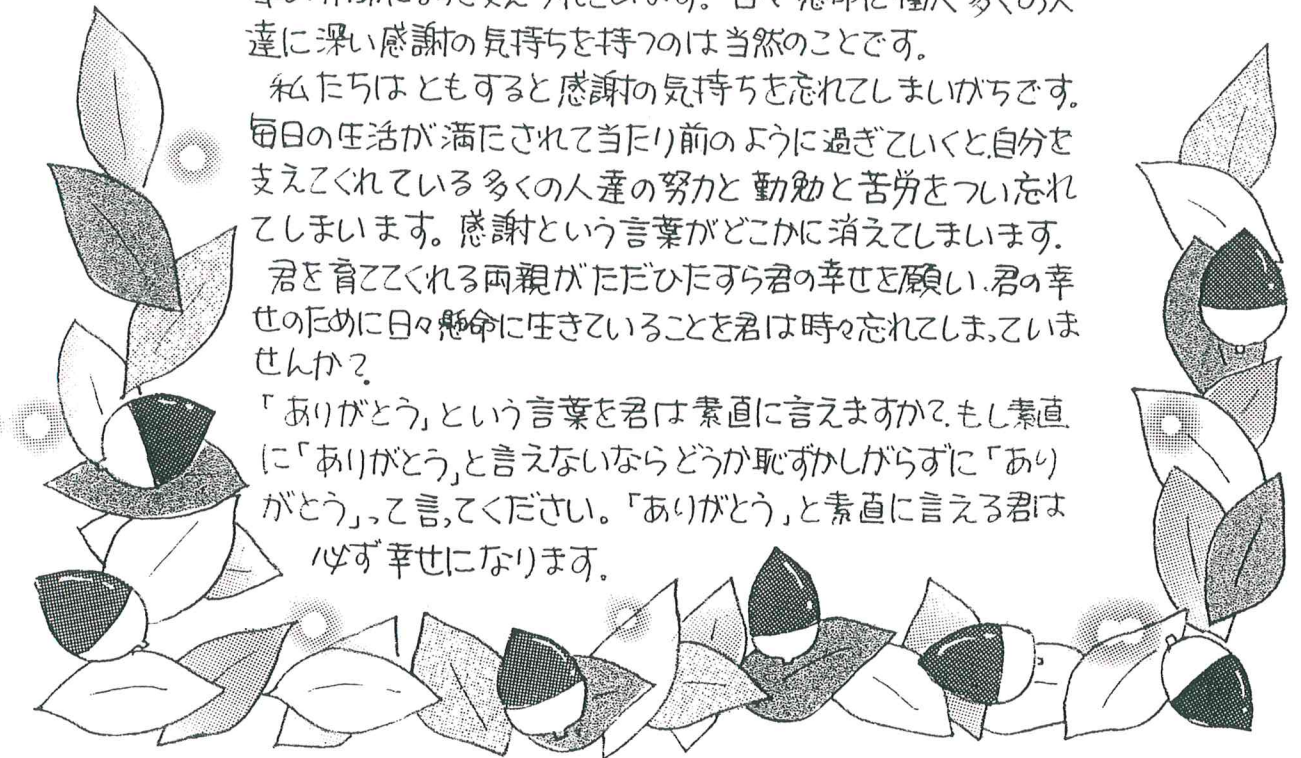 達に深い感謝の気持ちを持つのは当然のことです。
私たちはともすると感謝の気持ちを忘れてしまいがちです。
毎日の生活が満たされて当たり前のように過ぎていくと、自分を
支えてくれている多くの人達の努力と勤勉と苦労をつい忘れ
てしまいます。感謝という言葉がどこかに消えてしまいます。
君を育ててくれる両親がただひたすら君の幸せを願い、君の幸
せのために日々懸命に生きていることを君は時々忘れてしまっていま
せんか?
「ありがとう」という言葉を君は素直に言えますか?、もし素直
に「ありがとう」と言えないならどうか恥ずかしがらずに「あり
がとう」って言ってください。「ありがとう」と素直に言える君は
必ず幸せになります。